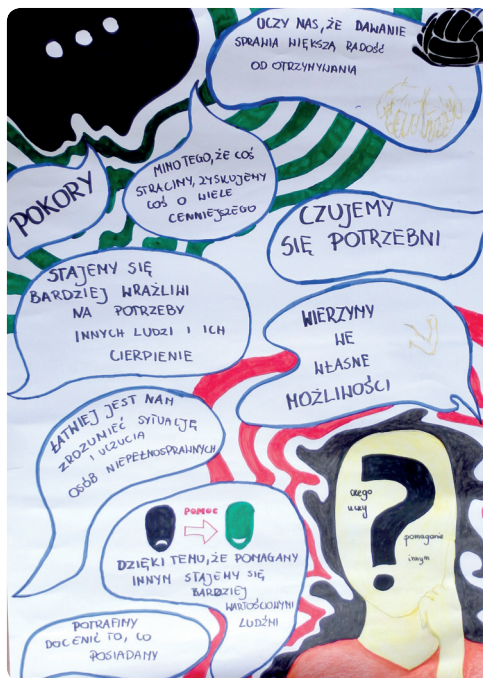 UCZY NAS, ŻE DAWANIE
SPRAWIA WIĘKSZĄ RADOŚĆ
OD OTRZYMYWANIA
POKORY
MIMO TEGO, ŻE COŚ
STRACIMY, ZYSKUJEMY
COŚ O WIELE
CENNIEJSZEGO
CZUJEMY
SIĘ POTRZEBNI
STAJEMY SIĘ
BARDZIEJ WRAŻLIWI
NA POTRZEBY
INNYCH LUDZI I ICH
CIERPIENIE
WIERZYMY
WE
WŁASNE
MOŻLIWOŚCI
ŁATWIEJ JEST NAM
ZROZUMIEĆ SYTUACJĘ
I UCZUCIA
OSÓB NIEPEŁNOSPRAWNYCH
?
czego
uczy
pomaganie
innym
POMOC
DZIĘKI TEMU, ŻE POMAGAMY
INNYM STAJEMY SIĘ
BARDZIEJ
WARTOŚCIOWYMI
LUDŹMI
POTRAFIMY
DOCENIĆ TO, CO
POSIADAMY